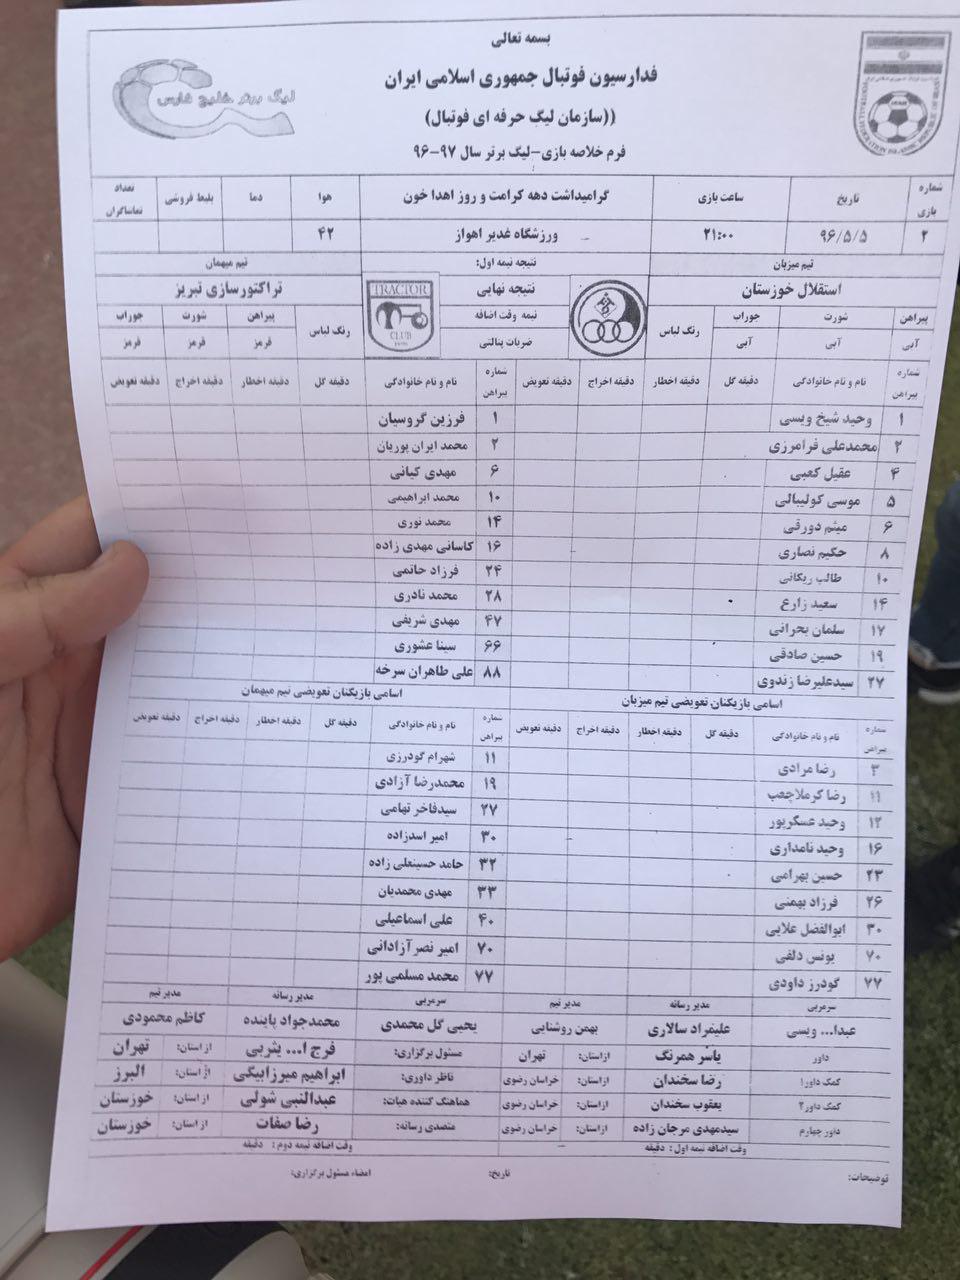 بسمه تعالی
فدراسیون فوتبال جمهوری اسلامی ایران
((سازمان لیگ حرفه ای فوتبال)
فرم خلاصه بازی-لیگ برتر سال ۹۷-۹۶
لیگ برتر خلیج فارس
شماره بازی تاریخ ساعت بازی گرامیداشت دهه کرامت و روز اهدا خون هوا دما بلیط فروشی تعداد تماشاگران
۲ ۹۶/۵/۵ ۲۱:۰۰ ورزشگاه غدیر اهواز ۴۲
تیم میزبان نتیجه نیمه اول: تیم میهمان
استقلال خوزستان نتیجه نهایی TRACTOR CLUB تراکتورسازی تبریز
پیراهن شورت جوراب رنگ لباس نیمه وقت اضافه رنگ لباس پیراهن شورت جوراب
آبی آبی آبی ضربات پنالتی قرمز قرمز قرمز
شماره پیراهن نام و نام خانوادگی دقیقه گل دقیقه اخطار دقیقه اخراج دقیقه تعویض شماره پیراهن نام و نام خانوادگی دقیقه گل دقیقه اخطار دقیقه اخراج دقیقه تعویض
۱ وحید شیخ ویسی ۱ فرزین گروسیان
۲ محمدعلی فرامرزی ۲ محمد ایران پوریان
۴ عقیل کعبی ۶ مهدی کیانی
۵ موسی کولیبالی ۱۰ محمد ابراهیمی
۶ میثم دورقی ۱۴ محمد نوری
۸ حکیم نصاری ۱۶ کاسانی مهدی زاده
۱۰ طالب ریکانی ۲۴ فرزاد حاتمی
۱۴ سعید زارع ۲۸ محمد نادری
۱۷ سلمان بحرانی ۴۷ مهدی شریفی
۱۹ حسین صادقی ۶۶ سینا عشوری
۲۷ سیدعلیرضا زندوی ۸۸ علی طاهران سرخه
اسامی بازیکنان تعویضی تیم میزبان اسامی بازیکنان تعویضی تیم میهمان
شماره پیراهن نام و نام خانوادگی دقیقه گل دقیقه اخطار دقیقه اخراج دقیقه تعویض شماره پیراهن نام و نام خانوادگی دقیقه گل دقیقه اخطار دقیقه اخراج دقیقه تعویض
۳ رضا مرادی ۱۱ شهرام گودرزی
۱۱ رضا کرملاچعب ۱۹ محمدرضا آزادی
۱۲ وحید عسکرپور ۲۷ سیدفاخر تهامی
۱۶ وحید نامداری ۳۰ امیر اسدزاده
۲۳ حسین بهرامی ۳۲ حامد حسینعلی زاده
۲۶ فرزاد بهمنی ۳۳ مهدی محمدیان
۳۰ ابوالفضل علایی ۴۰ علی اسماعیلی
۷۰ یونس دلفی ۷۰ امیر نصرآزادانی
۷۷ گودرز داودی ۷۷ محمد مسلمی پور
سرمربی مدیر رسانه مدیر تیم سرمربی مدیر رسانه مدیر تیم
عبدا... ویسی علیمراد سالاری بهمن روشنایی یحیی گل محمدی محمدجواد پاینده کاظم محمودی
داور یاسر همرنگ ازاستان: تهران مسئول برگزاری: فرج ا... یثربی ازاستان: تهران
کمک داور۱ رضا سخندان ازاستان: خراسان رضوی ناظر داوری: ابراهیم میرزابیگی ازاستان: البرز
کمک داور۲ یعقوب سخندان ازاستان: خراسان رضوی هماهنگ کننده هیات: عبدالنبی شولی ازاستان: خوزستان
داور چهارم سیدمهدی مرجان زاده ازاستان: خراسان رضوی متصدی رسانه: رضا صفات ازاستان: خوزستان
وقت اضافه نیمه اول : دقیقه وقت اضافه نیمه دوم : دقیقه
توضیحات: تاریخ: امضاء مسئول برگزاری: